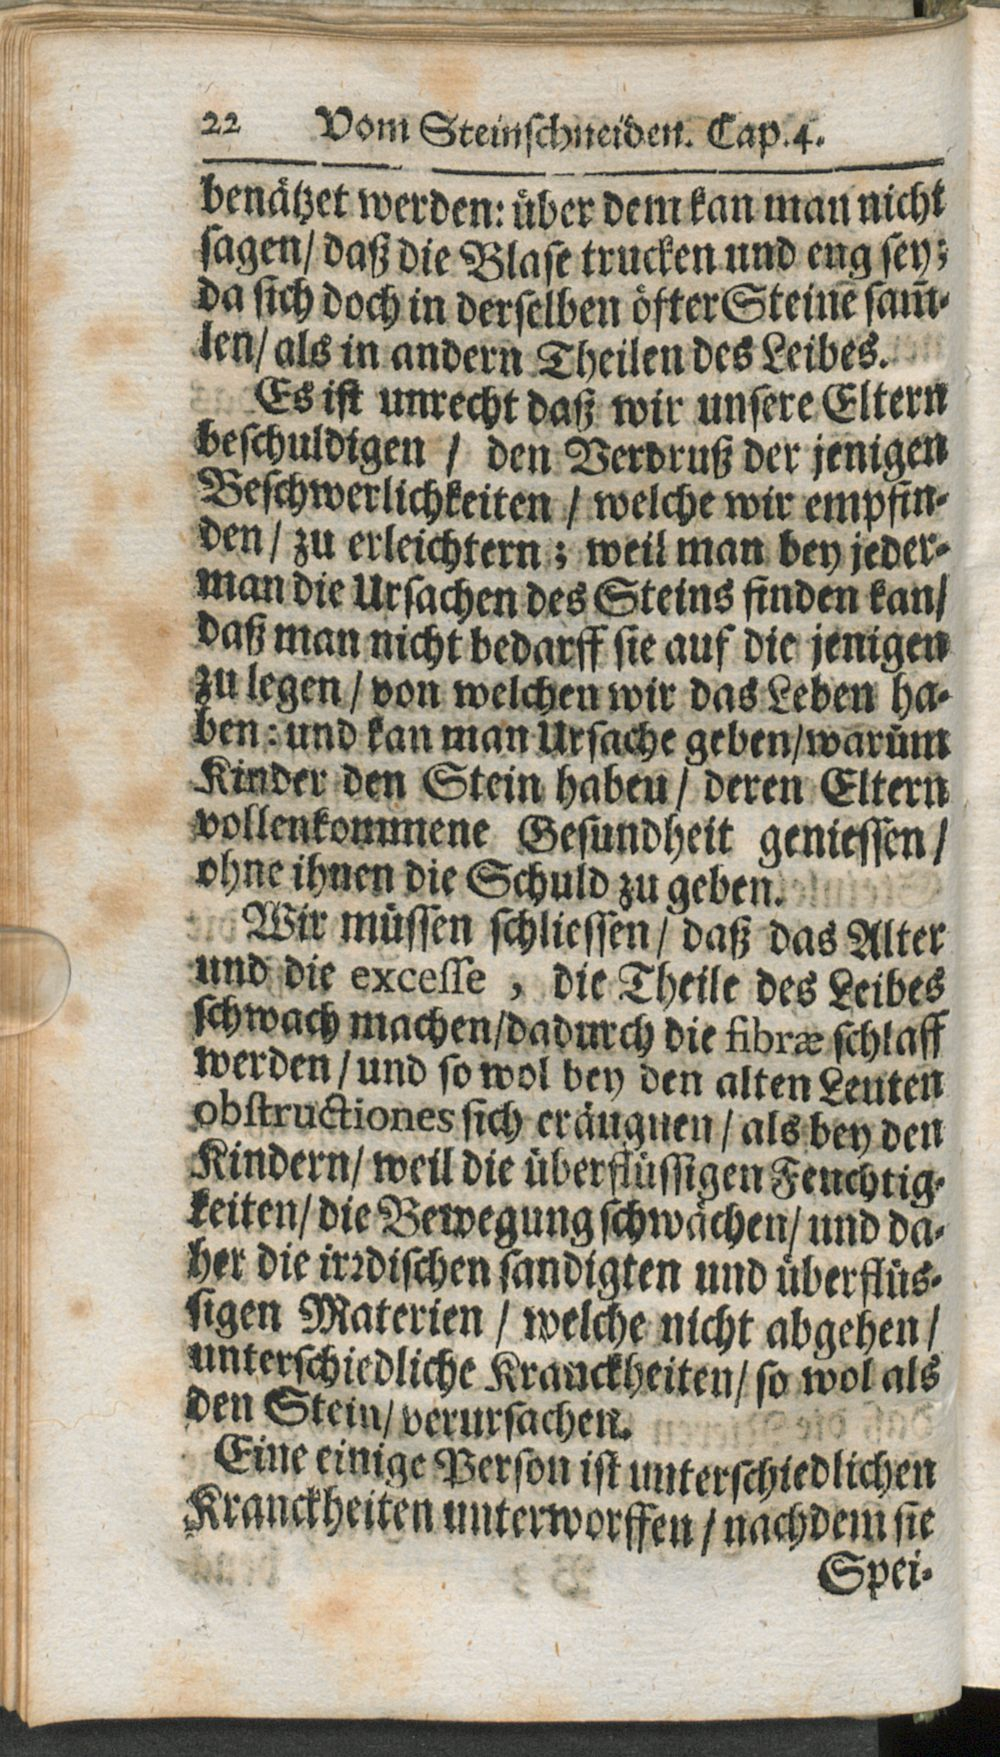 22 Vom Steinschneiden. Cap. 4.
benätzet werden: über dem kan man nicht
sagen/ daß die Blase trucken und eng sey;
da sich doch in derselben öfter Steine sam̃-
len/ als in andern Theilen des Leibes.
Es ist unrecht daß wir unsere Eltern
beschuldigen / den Verdruß der jenigen
Beschwerlichkeiten / welche wir empfin-
den / zu erleichtern; weil man bey jeder-
man die Ursachen des Steins finden kan/
daß man nicht bedarff sie auf die jenigen
zu legen / von welchen wir das Leben ha-
ben: und kan man Ursache geben/ warüm
Kinder den Stein haben / deren Eltern
vollenkommene Gesundheit geniessen /
ohne ihnen die Schuld zu geben.
Wir müssen schliessen / daß das Alter
und die excesse , die Theile des Leibes
schwach machen/ dadurch die fibræ schlaff
werden / und so wol bey den alten Leuten
obstructiones sich eräugnen / als bey den
Kindern/ weil die überflüssigen Feuchtig-
keiten/ die Bewegung schwächen/ und da-
her die irꝛdischen sandigten und überflüs-
sigen Materien / welche nicht abgehen /
unterschiedliche Kranckheiten/ so wol als
den Stein/ verursachen.
Eine einige Person ist unterschiedlichen
Kranckheiten unterworffen / nachdem sie
Spei-